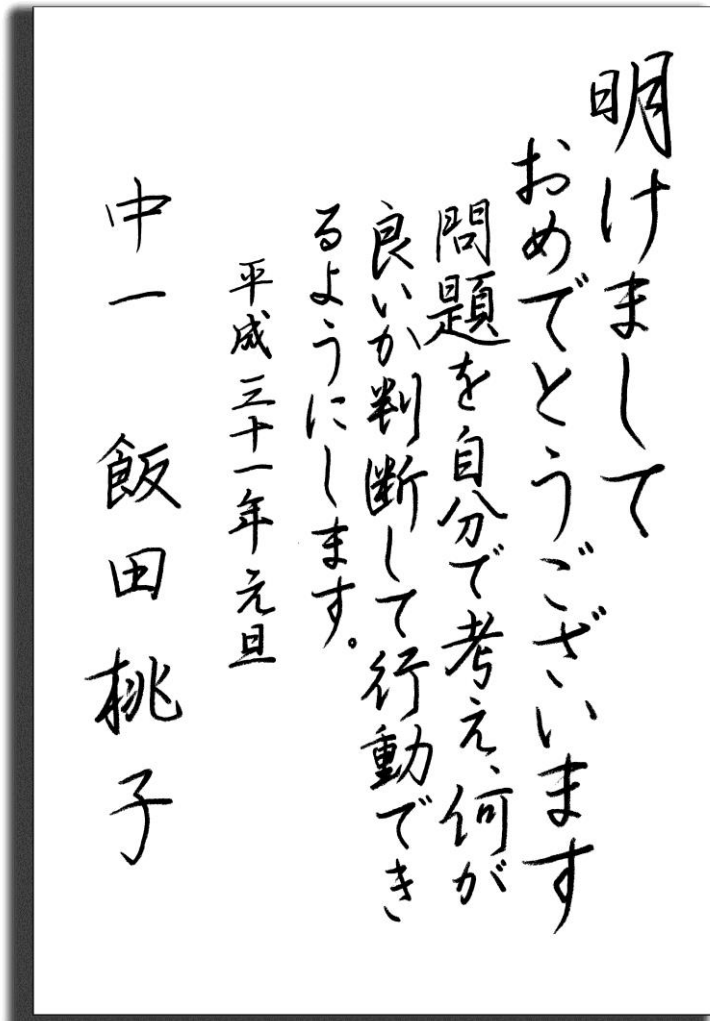 明けまして
おめでとうございます
問題を自分で考え、何が
良いか判断して行動でき
るようにします。
平成三十一年元旦
中一 飯田桃子